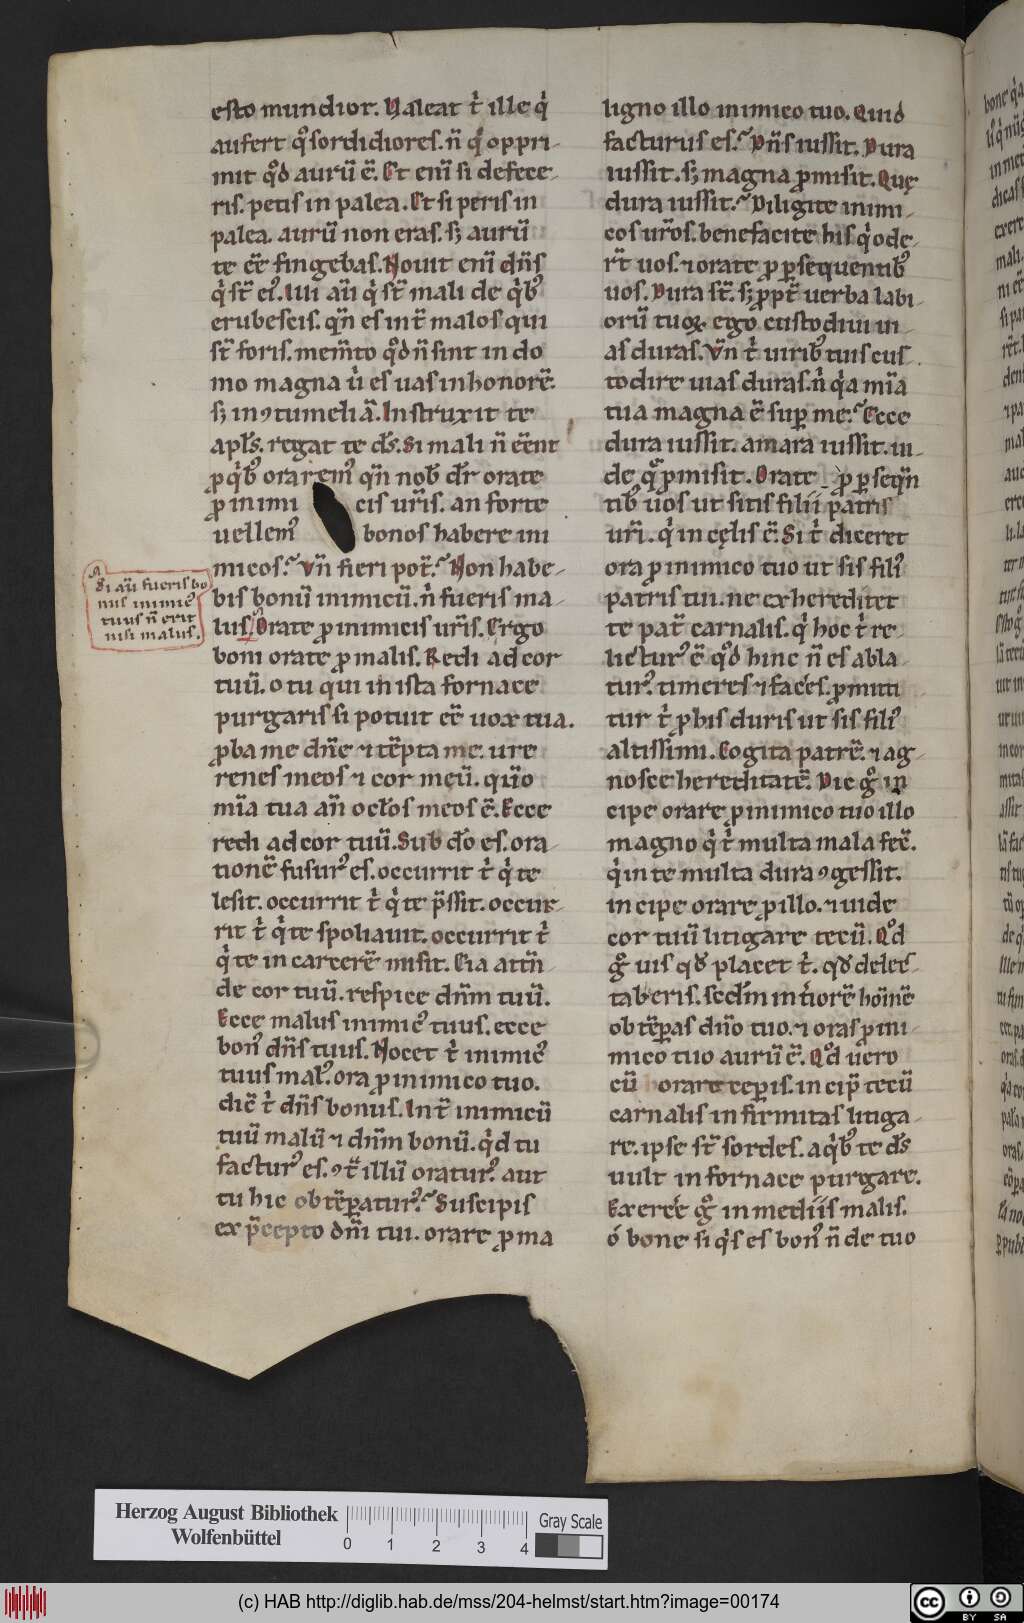 esto mundior. Valeat t̓ ille q̓
aufert q̊ sordidiores. n̄ q̓ oppri-
mit q̊d aurū ē. Et enī si defece-
ris. petis in palea. Et si peris in
palea. aurū non eras. sꝫ aurū
te eē̄ fingebas. Nouit enī dn̄s
q̓ st̄ eꝰ. Illi aū q̓ st̄ mali de q̓bꝰ
erubescis. qn̄ es int̄ malos qui
st̄ foris. mem̄to q̊d n̄ sint in do
mo magna u̓ es uas in honorē.
sꝫ in ꝯtumeliā. Instruxit te
apls̄. regat te ds̄. Si mali n̄ eēnt
ꝓ q̓bꝰ oraremꝰ qn̄ nob̄ dr̄ orate
ꝓ inimi cis ur̄is. an forte
uellemꝰ bonos habere ini
micos? Vn̄ fieri pot̄? Non habe-
bis bonū inimicū. n̓ fueris ma-
lus. Orate ꝓ inimicis ur̄is. Ergo
boni orate ꝓ malis. Redi ad cor
tuū. o tu qui in ista fornace
purgaris si potuit eē̄ uox tua.
ꝓba me dn̄e ⁊ tēpta me. ure
renes meos ⁊ cor meū. qm̄o
mīa tua an̄ oclōs meos ē. Ecce
redi ad cor tuū. Sub dō es. ora-
tionē fusurꝰ es. occurrit t̓ q̓ te
lesit. occurrit t̓ q̓ te p̄ssit. occur-
rit t̓ q̓ te spoliauit. occurrit t̓
q̓ te in carcerē misit. Eia attn̄-
de cor tuū. respice dn̄m tuū.
Ecce malus inimicꝰ tuus. ecce
bonꝰ dn̄s tuus. Nocet t̓ inimicꝰ
tuus malꝰ. ora ꝓ inimico tuo.
dic̄ t̓ dn̄s bonus. Int̄ inimicū
tuū malū ⁊ dn̄m bonū. q̓d tu
facturꝰ es. ꝯt̄ illū oraturꝰ. aut
tu hic obtēꝑaturꝰ? Suscipis
ex p̄cepto dn̄i tui. orare ꝓ ma
Si aū fueris bo
nus inimicꝰ
tuus n̄ erit
nisi malus.
ligno illo inimico tuo. Quid
facturus es? Dn̄s iussit. Dura
iussit. sꝫ magna ꝓmisit. Quę
dura iussit? Diligite inimi-
cos ur̄os. benefacite his q̓ ode-
rt̄ uos. ⁊ orate ꝓ ꝑsequentibꝰ
uos. Dura st̄. sꝫ ꝓpt̄ uerba labi-
orū tuoꝝ ego custodiui ui-
as duras. Vn̄ t̓ uiribꝰ tuis cus-
todire uias duras. n̓ q̓a mīa
tua magna ē suꝑ me? Ecce
dura iussit. amara iussit. ui-
de qͣ ꝓmisit. Orate ꝓ ꝑseqn̄
tibꝰ uos ut sitis filii patris
ur̄i. q̓ in cęlis ē. Si t̓ diceret
ora ꝓ inimico tuo ut sis filiꝰ
patris tui. ne exhereditet
te pat̄ carnalis. q̓ hoc t̓ re-
licturꝰ ē q̊d hinc n̄ es abla-
turꝰ. timeres ⁊ faces. ꝓmitti
tur t̓ ꝓ his duris ut sis filiꝰ
altissimi. Cogita patrē. ⁊ ag-
nosce hereditatē. Dic g̊ in
cipe orare ꝓ inimico tuo illo
magno q̓ t̓ multa mala fec̄.
q̓ in te multa dura ꝯgessit.
incipe orare ꝓ illo. ⁊ uide
cor tuū litigare tecū. Q̊d
g̊ uis qđ placet t̓. qđ delec̄-
taberis. sedm̄ int̓iorē hoīnē
obtēꝑas dn̄o tuo. ⁊ oras ꝓ ini-
mico tuo aurū ē. Q̊d uero
cū orare ceꝑis. incip̄ tecū
carnalis infirmitas litiga-
re. ipse st̄ sordes. a q̓bꝰ te ds̄
uult in fornace purgare.
Exerce g̊ in mediis malis.
ó bone si q̓s es bonꝰ n̄ de tuo
Herzog August Bibliothek
Wolfenbüttel
0 1 2 3 4
Gray Scale
(c) HAB http://diglib.hab.de/mss/204-helmst/start.htm?image=00174
cc BY SA